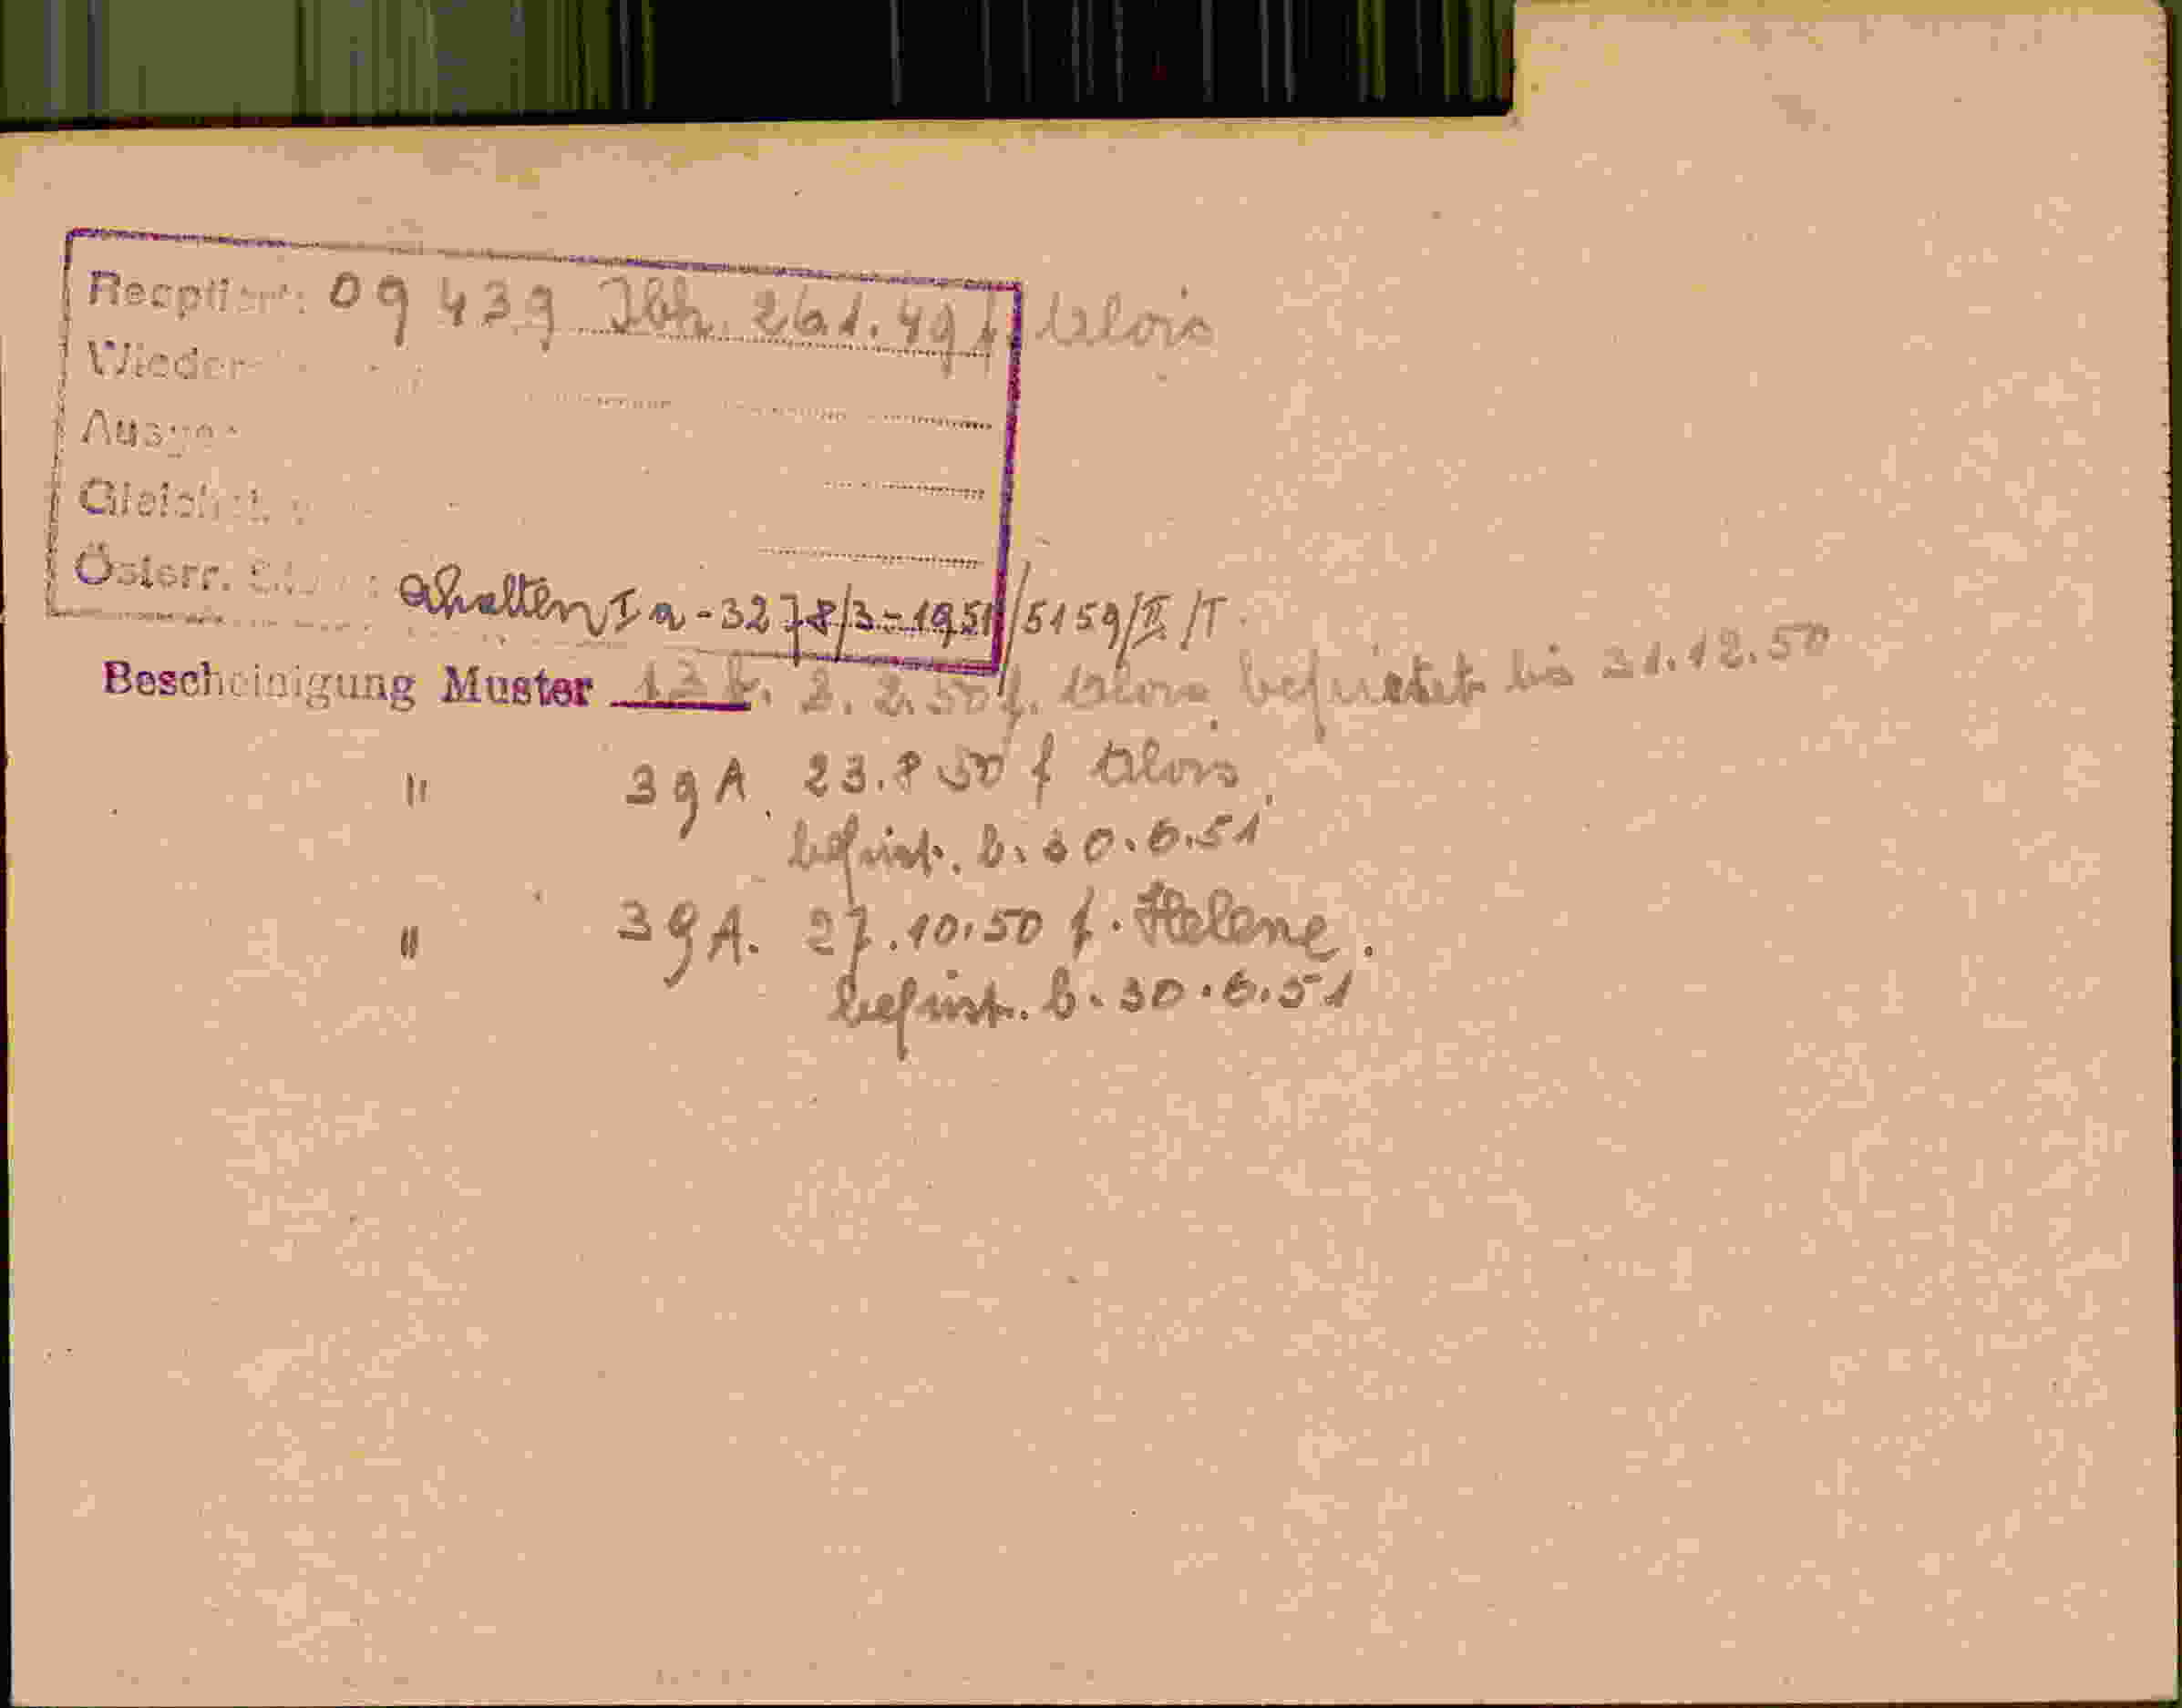 09439 Ibk. 26.1.49 f. Alois
Österr.
erhalten Ia-3278/3-1951/5159/II/T.
Bescheinigung Muster 2.2.50 f. Alois befristet bis 31.12.50
" 39A. 23.8.50 f Alois
befrist. b. 30.6.51
" 39A. 27.10.50 f. Helene.
befrist. b. 30.6.51